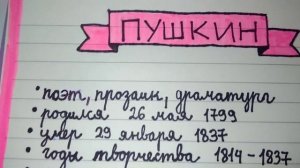 ПУШКИН
• поэт, прозаик, драматург
• родился 26 мая 1799
• умер 29 января 1837
• годы творчества 1814-1837